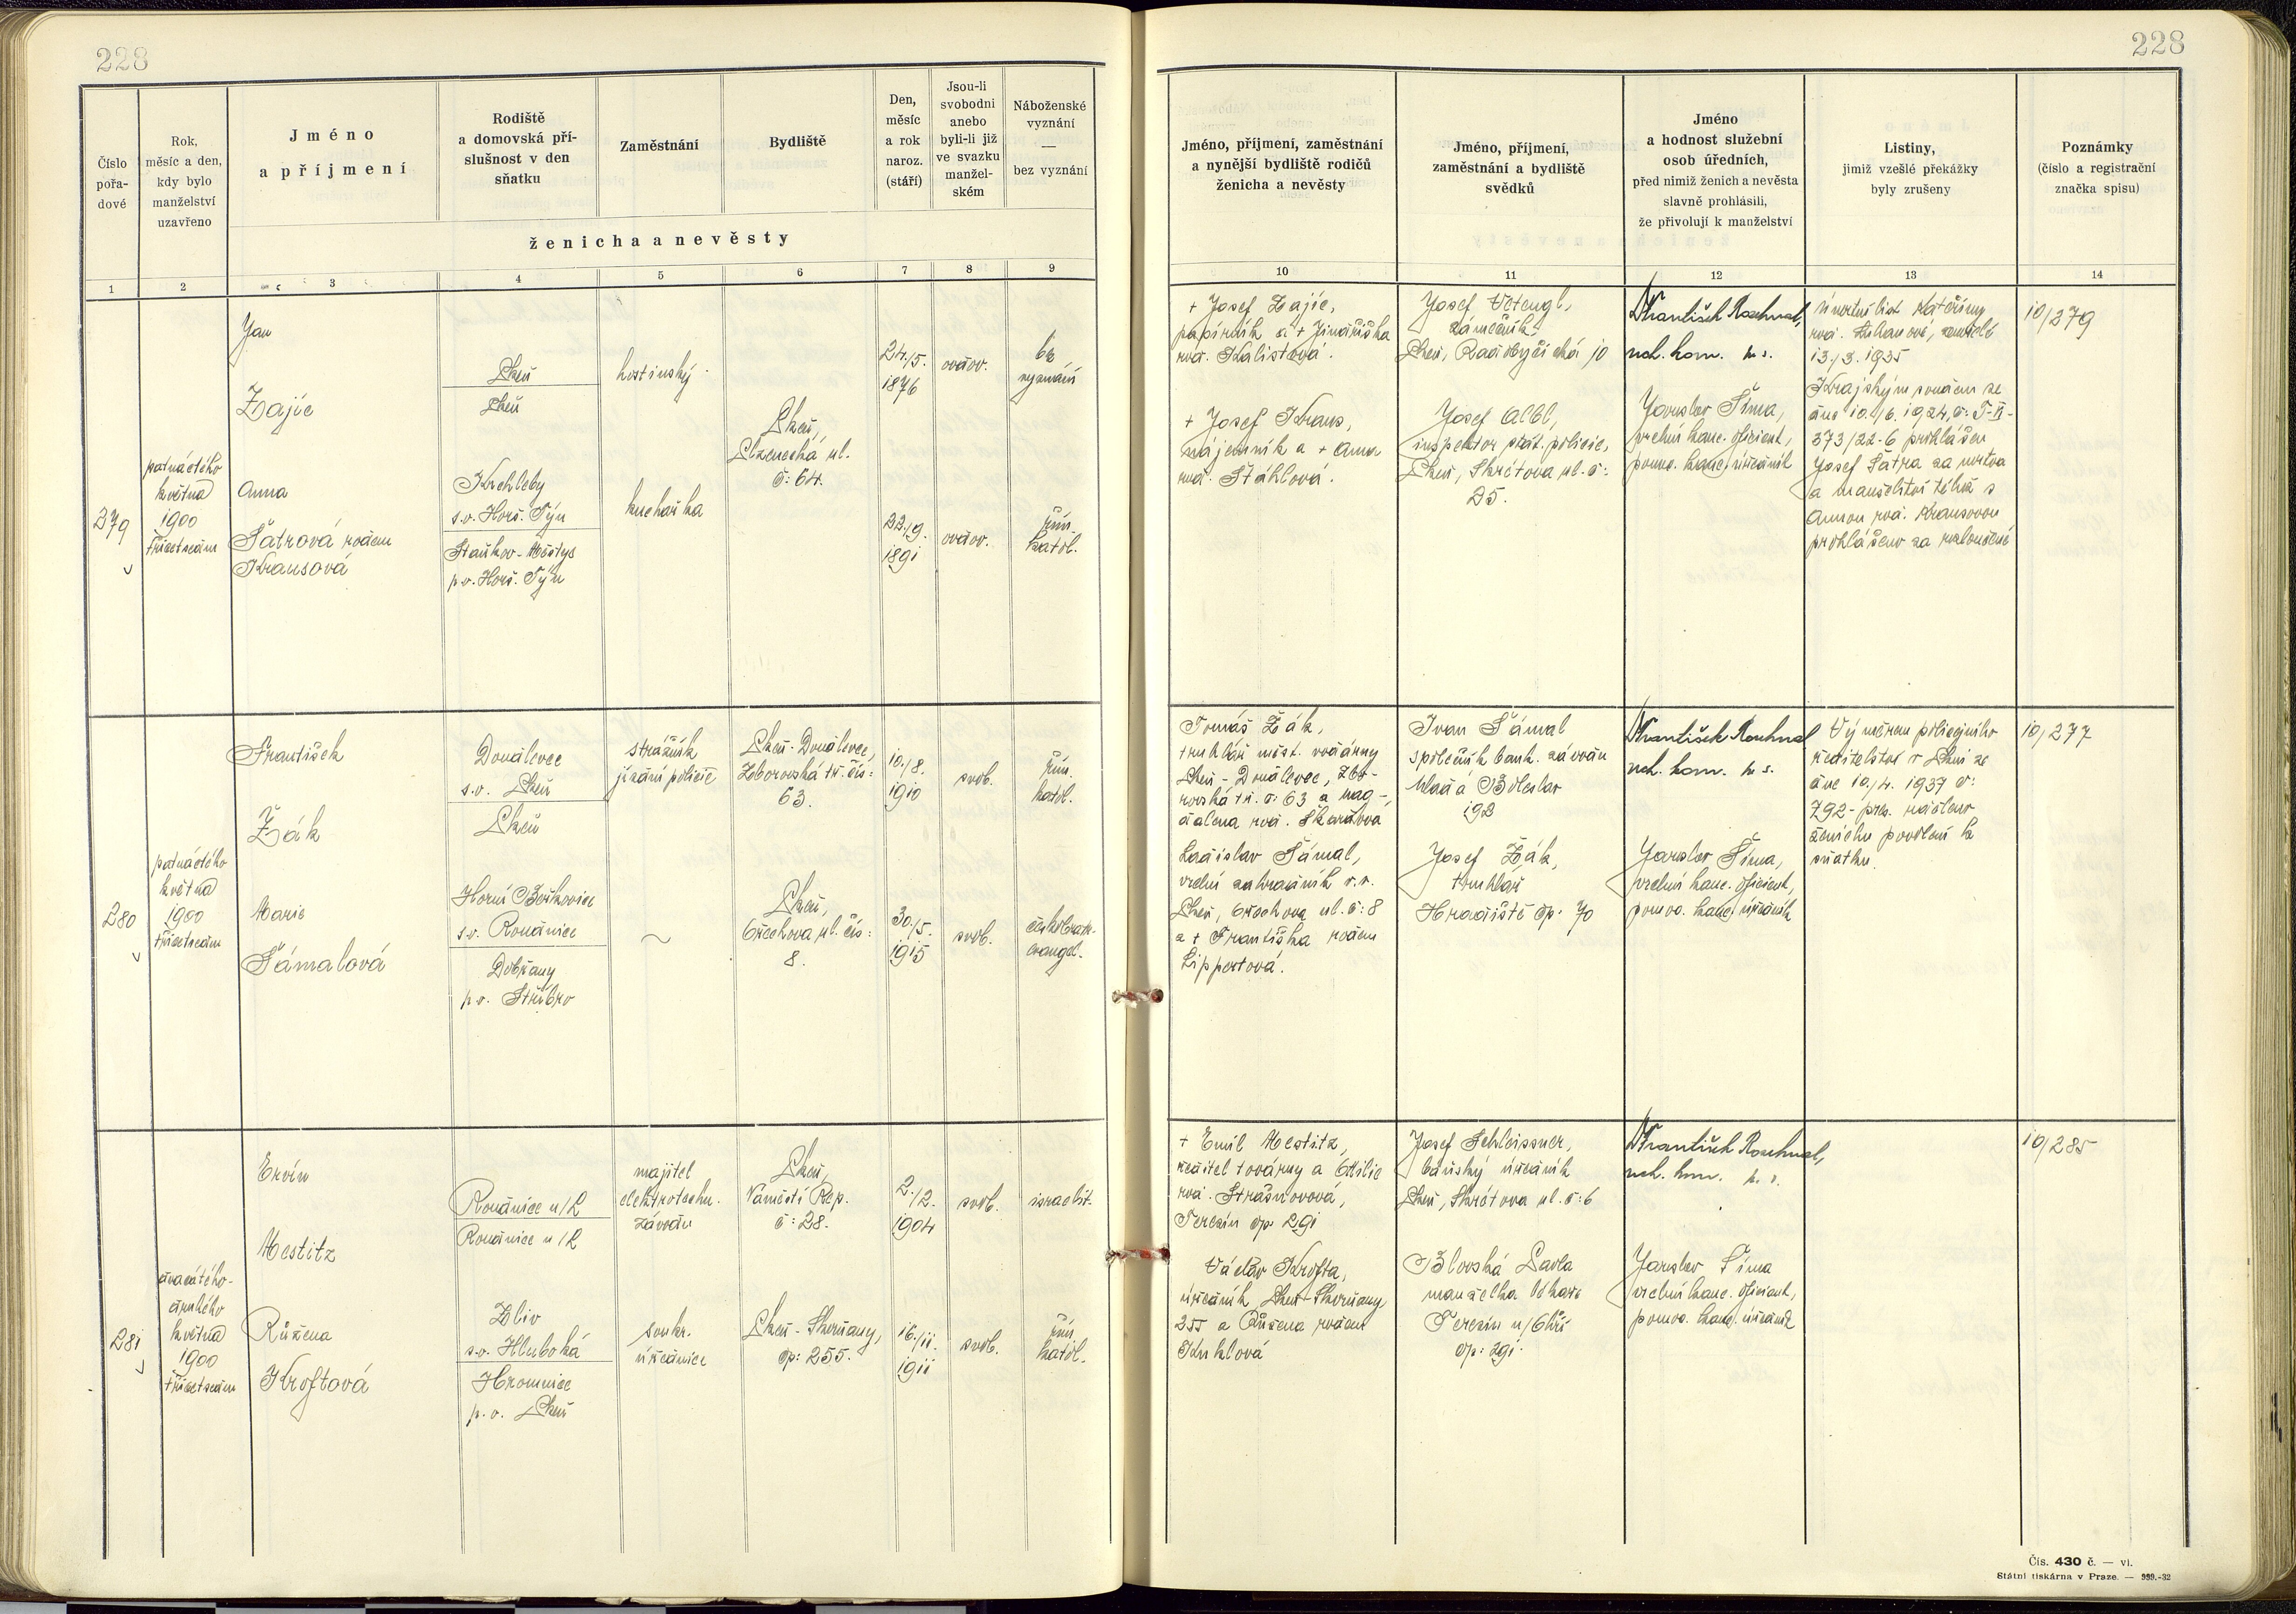 228
228
Číslo pořadové
Rok, měsíc a den, kdy bylo manželství uzavřeno
Jméno a příjmení
Rodiště a domovská příslušnost v den sňatku
Zaměstnání
Bydliště
Den, měsíc a rok naroz. (stáří)
Jsou-li svobodni anebo byli-li již ve svazku manželském
Náboženské vyznání — bez vyznání
ženicha a nevěsty
Jméno, příjmení, zaměstnání a nynější bydliště rodičů ženicha a nevěsty
Jméno, příjmení, zaměstnání a bydliště svědků
Jméno a hodnost služební osob úředních, před nimiž ženich a nevěsta slavně prohlásili, že přivolují k manželství
Listiny, jimiž vzešlé překážky byly zrušeny
Poznámky (číslo a registrační značka spisu)
1 2 3 4 5 6 7 8 9 10 11 12 13 14
279
patnáctého
května
1900
třicetsedm
Jan
Zajíc
Plzeň
Plzeň
hostinský
24./5.
1876
ovdov.
bez
vyznání
Plzeň,
Plzenecká ul.
č: 64.
Anna
Šatrová rodem
Krausová
Krchleby
s.o. Horš. Týn
Staňkov-Městys
p.o. Horš. Týn
kuchařka
22./9.
1891
ovdov.
řím.
katol.
+ Josef Zajíc,
papírník a + Jindřiška
roz. Kalistová.
+ Josef Kraus,
nájemník a + Anna
roz. Stáhlová.
Josef
zámečník
Plzeň, Radobyčická 10
Josef Albl,
inspektor stát. policie,
Plzeň, Skrétova ul. č:
25.
Jaroslav Šíma,
vrchní kanc. oficiant,
pomoc. kanc. úředník
úmrtní list Kateřiny
13./3. 1935
Krajským soudem ze
dne 10./6. 1924, č: T-II-
373/22-6 prohlášen
Josef Šatra za mrtva
a manželství téhož s
Annou roz. Krausovou
prohlášeno za rozloučené
10/279
280
patnáctého
května
1900
třicetsedm
František
Žák
Doudlevce
s.o. Plzeň
Plzeň
strážník
jízdní policie
Plzeň-Doudlevce,
Zborovská tř. čís:
63.
10./8.
1910
svob.
řím.
katol.
Marie
Šámalová
Horní Beřkovice
s.o. Roudnice
Dobřany
p.o. Stříbro
~
Plzeň,
Ořechova ul. čís:
8.
30./5.
1915
svob.
českobratr.
evangel.
Tomáš Žák,
truhlář měst. vodárny
Plzeň-Doudlevce, Zbo-
rovská tř. č: 63 a Mag-
dalena roz. Škardova
Ladislav Šámal,
vrchní zahradník v.v.
Plzeň, Ořechova ul. č: 8
a + Františka rodem
Lippertová.
Ivan Šámal
společník bank. závodu
Mladá Boleslav
192
Josef Žák,
truhlář
Hradiště čp: 70
Jaroslav Šíma,
vrchní kanc. oficiant,
pomoc. kanc. úředník
Výměrem policejního
ředitelství v Plzni ze
dne 10./4. 1937 č:
792-pres. uděleno
ženichu povolení k
sňatku.
10/277
281
dvacátého-
druhého
května
1900
třicetsedm
Ervín
Mestitz
Roudnice n/L
Roudnice n/L
majitel
elektrotechn.
závodu
Plzeň,
Náměstí Rep.
č: 28.
2./2.
1904
svob.
israelit.
Růžena
Kroftová
Zliv
s.o. Hluboká
Hromnice
p.o. Plzeň
soukr.
úřednice
Plzeň-Skvrňany,
čp: 255.
16./11.
1911
svob.
řím.
katol.
+ Emil Mestitz,
ředitel továrny a Otilie
roz. Strašnovová,
Terezín čp: 291
Václav Krofta,
úředník, Plzeň-Skvrňany
255 a Růžena rodem
Kuklová
Josef Schleissner,
báňský úředník
Plzeň, Skrétova ul. č: 6
Blovská Pavla
manželka lékaře
Terezín n/Ohří
čp: 291.
Jaroslav Šíma
vrchní kanc. oficiant,
pomoc. kanc. úředník
10/285
Čís. 430 č. — vi.
Státní tiskárna v Praze. — 939.-32